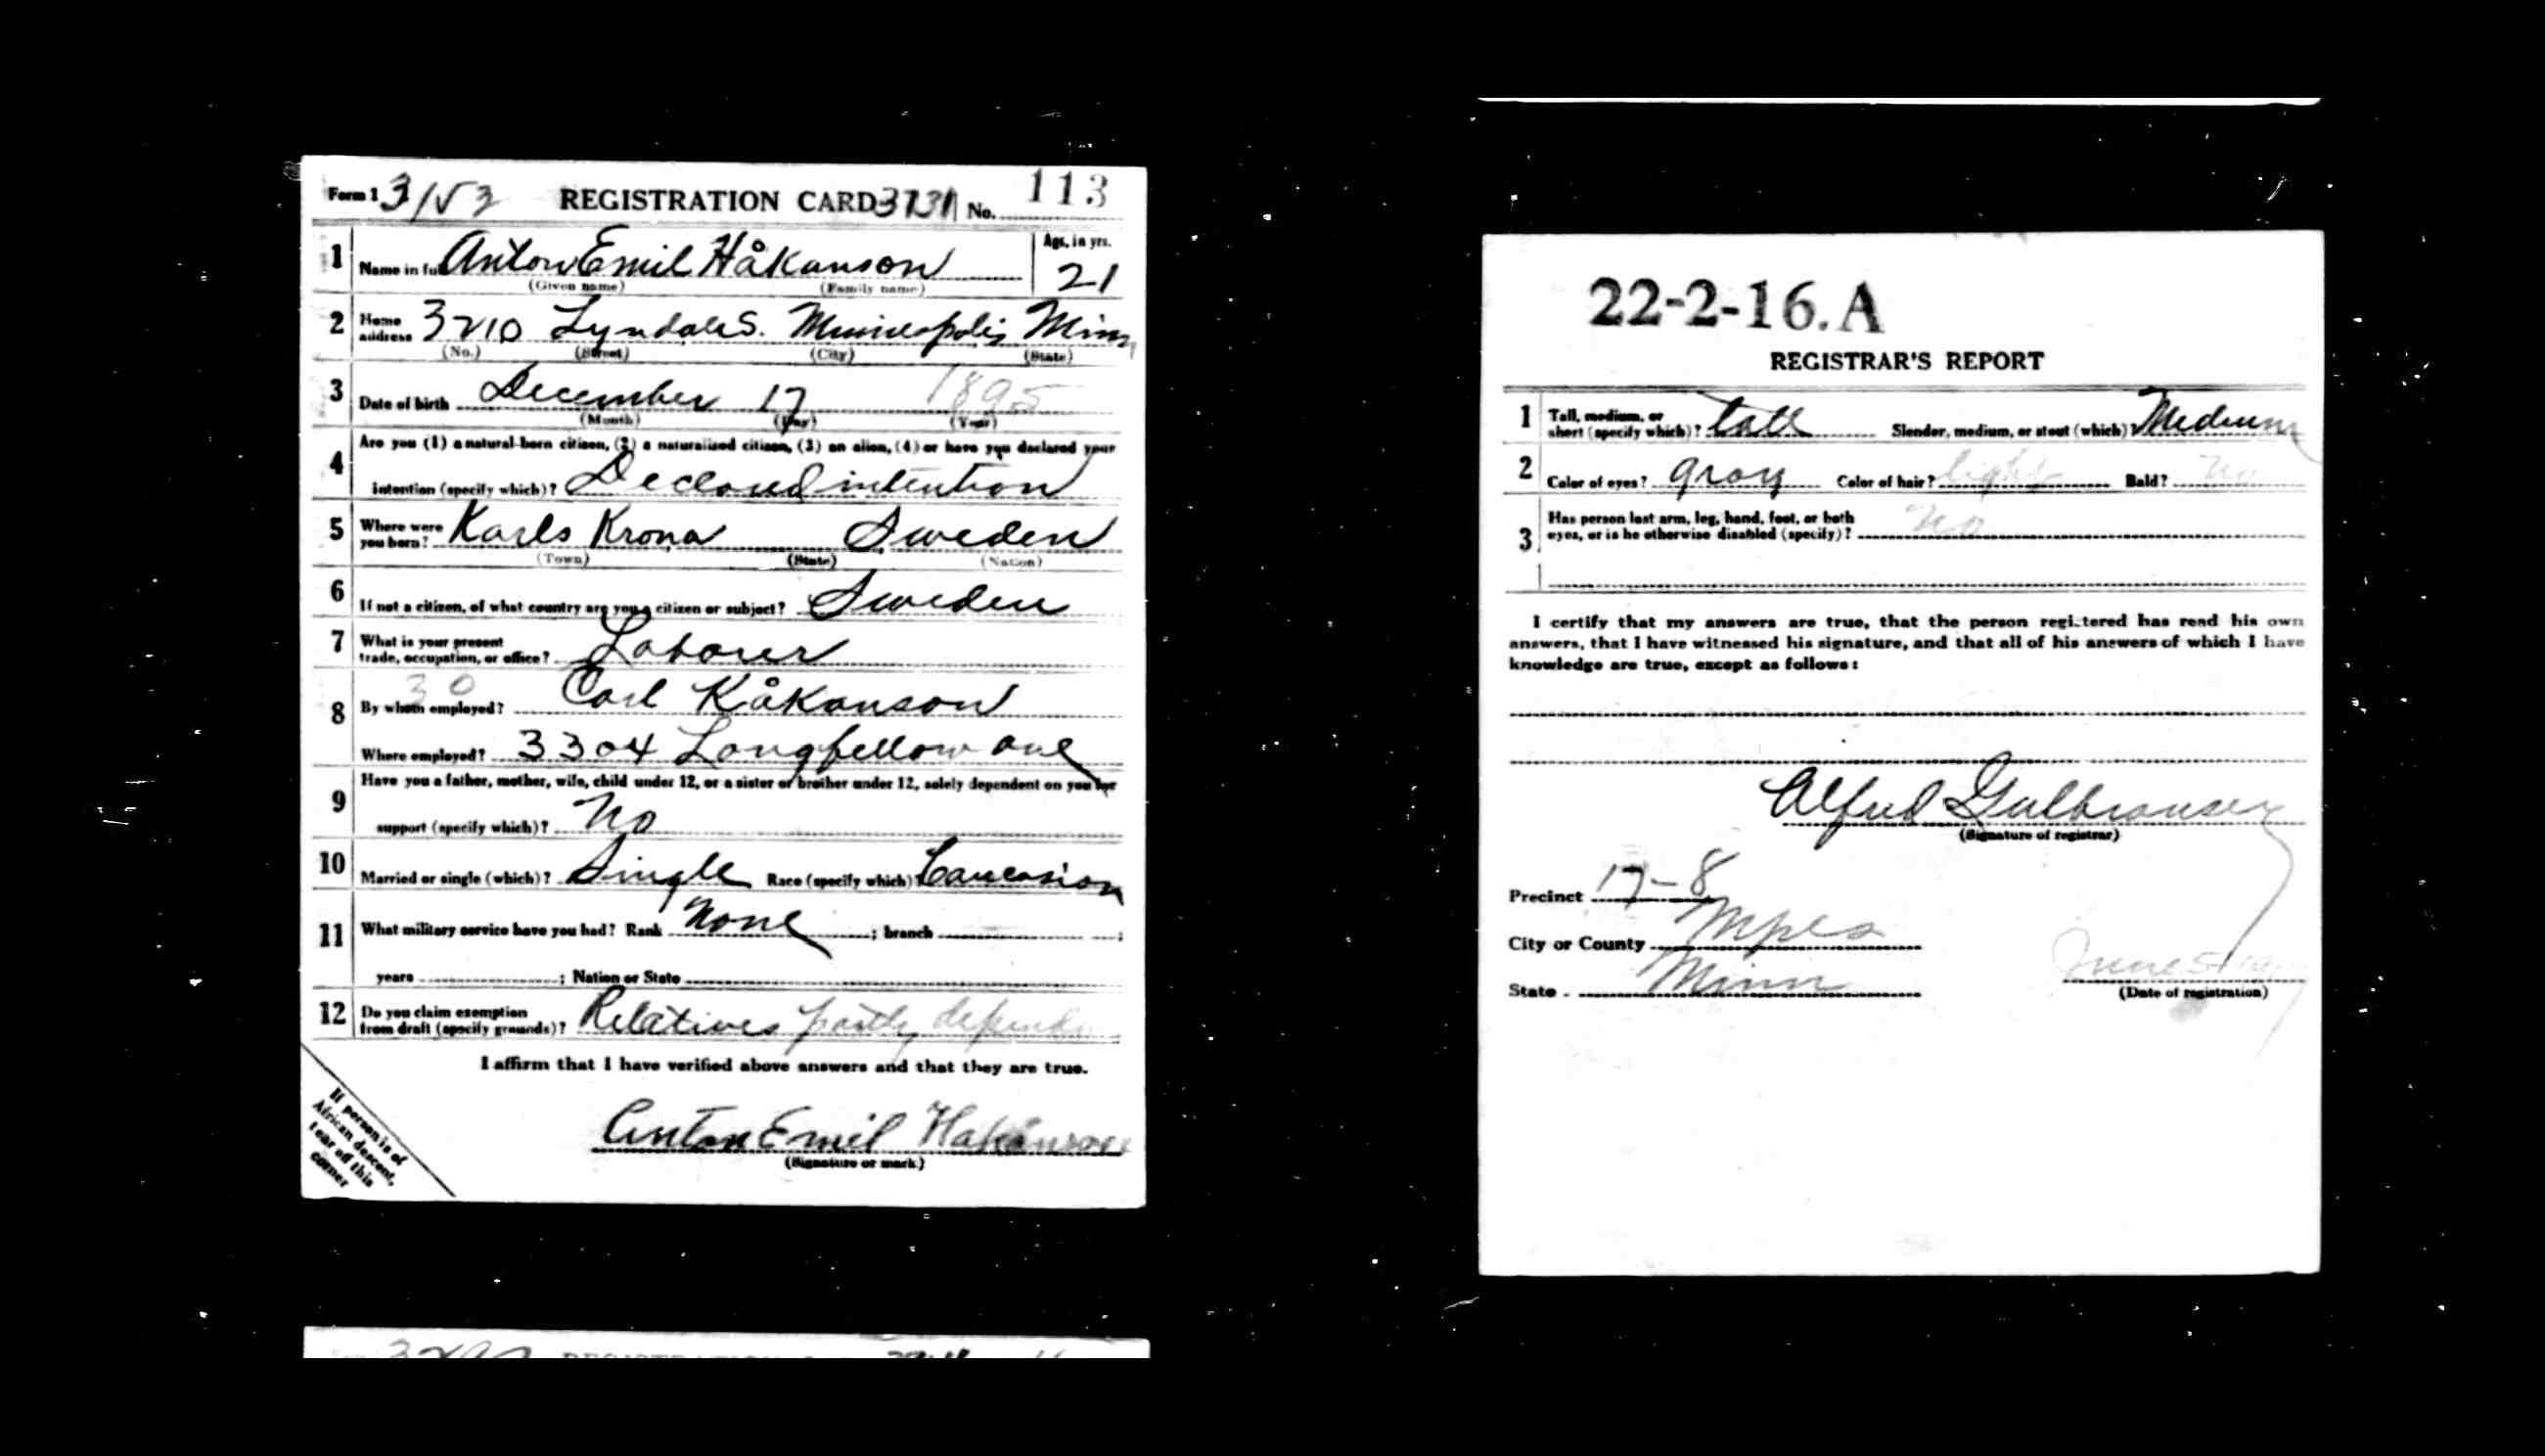 Form 1 3153 REGISTRATION CARD 3731 No. 113
1 Name in full Anton Emil Håkanson Age, in yrs. 21
(Given name) (Family name)
2 Home address 3210 Lyndale S. Minneapolis Minn
(No.) (Street) (City) (State)
3 Date of birth December 17 1895
(Month) (Day) (Year)
4 Are you (1) a natural-born citizen, (2) a naturalized citizen, (3) an alien, (4) or have you declared your
intention (specify which)? Declared intention
5 Where were you born? Karls Krona Sweden
(Town) (State) (Nation)
6 If not a citizen, of what country are you a citizen or subject? Sweden
7 What is your present trade, occupation, or office? Laborer
30
8 By whom employed? Carl Kåkanson
Where employed? 3304 Longfellow ave
9 Have you a father, mother, wife, child under 12, or a sister or brother under 12, solely dependent on you for
support (specify which)? No
10 Married or single (which)? Single Race (specify which)? Caucasion
11 What military service have you had? Rank None ; branch ;
years ; Nation or State
12 Do you claim exemption from draft (specify grounds)? Relatives partly
I affirm that I have verified above answers and that they are true.
Anton Emil Hakånson
(Signature or mark)
If person is of
African descent,
tear off this
corner
22-2-16. A
REGISTRAR'S REPORT
1 Tall, medium, or short (specify which)? tall Slender, medium, or stout (which)? Medium
2 Color of eyes? gray Color of hair? light Bald? No
3 Has person lost arm, leg, hand, foot, or both
eyes, or is he otherwise disabled (specify)? No
I certify that my answers are true, that the person registered has read his own
answers, that I have witnessed his signature, and that all of his answers of which I have
knowledge are true, except as follows:
Alfred Gulbransen
(Signature of registrar)
Precinct 17-8
City or County Mpls
State Minn June 5
(Date of registration)